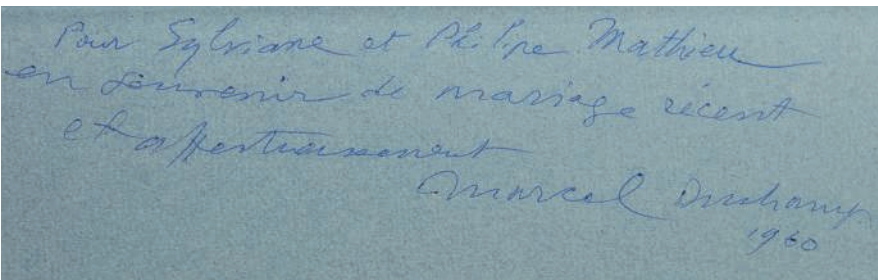 Pour Sylviane et Philippe Mathieu
en souvenir de mariage récent
et affectueusement
Marcel Duchamp
1960